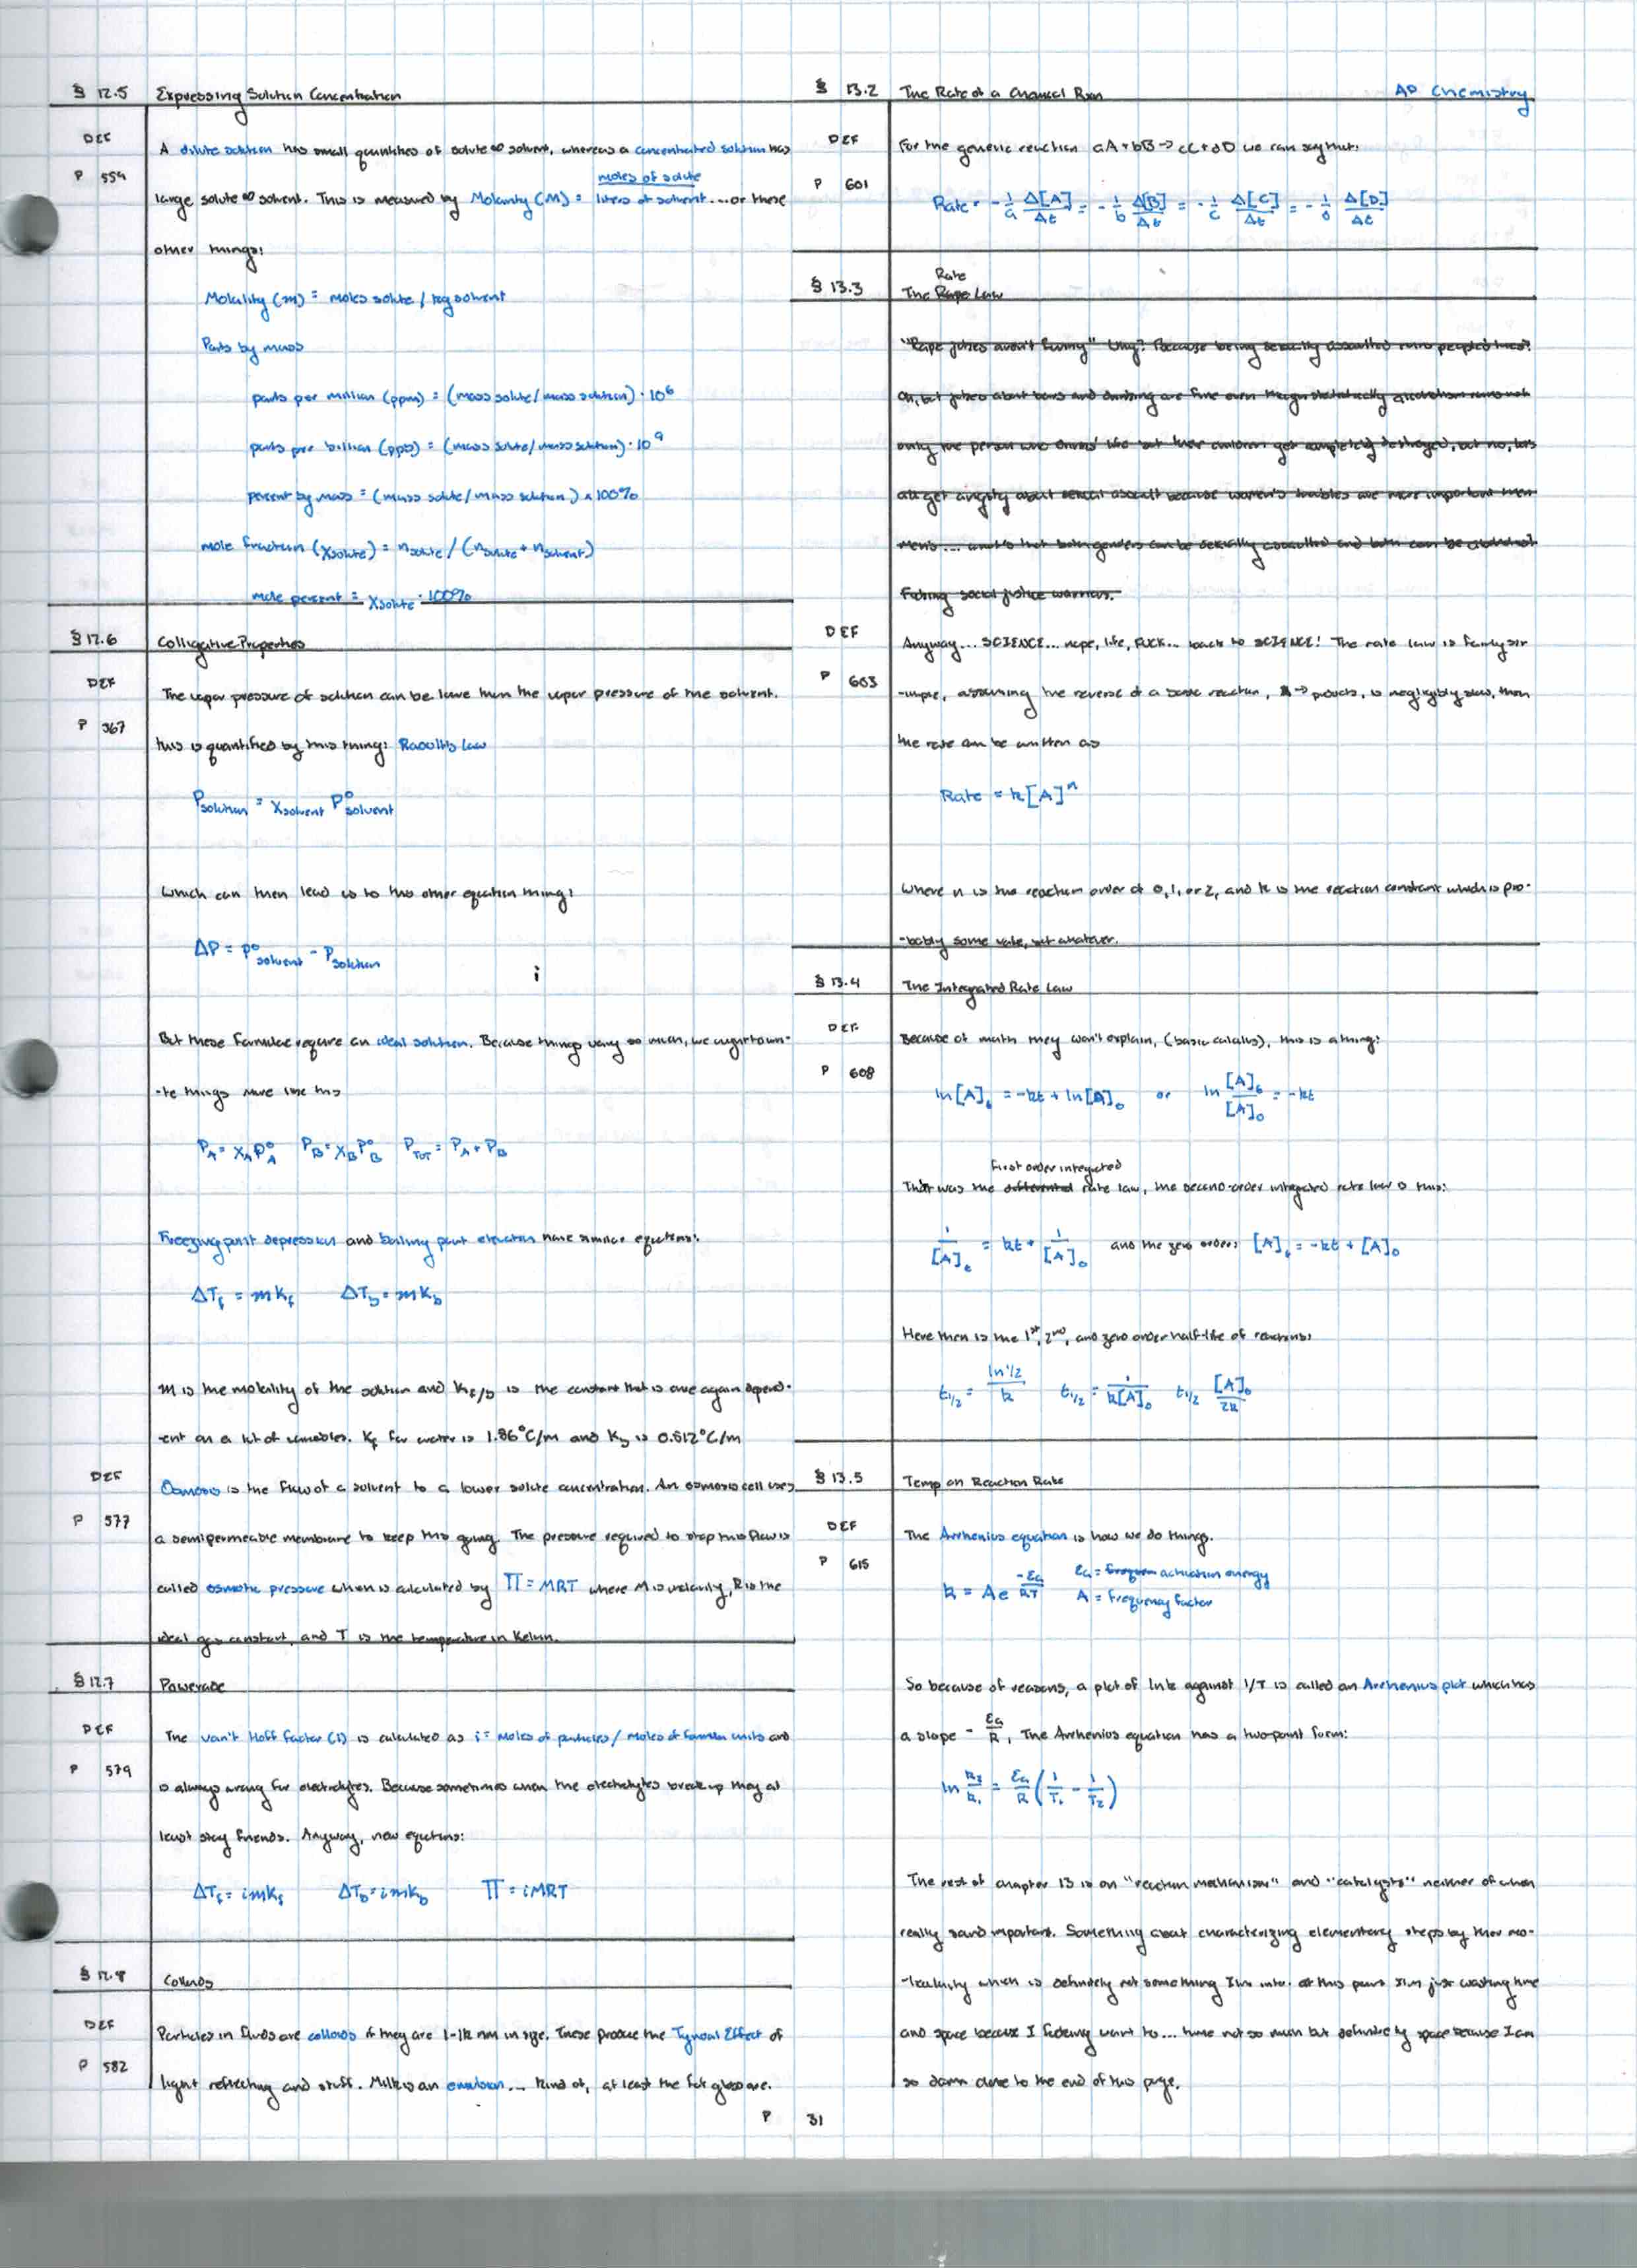 § 12.5 Expressing Solution Concentration
DEF A dilute solution has small quantities of solute ∞ solvent, whereas a concentrated solution has
P 554 large solute ∞ solvent. This is measured by Molarity (M) = moles of solute / liters of solvent ... or these
other things:
Molality (m) = moles solute / kg solvent
Parts by mass
parts per million (ppm) = (mass solute/mass solution) · 10⁶
parts per billion (ppb) = (mass solute/mass solution) · 10⁹
percent by mass = (mass solute/mass solution) × 100%
mole fraction (χsolute) = nsolute / (nsolute + nsolvent)
mole percent = χsolute · 100%
§ 12.6 Colligative Properties
DEF The vapor pressure of solution can be lowe then the vapor pressure of the solvent.
P 567 this is quantified by this thing: Raoult's Law
Psolution = χsolvent P°solvent
which can then lead us to this other equation thing:
ΔP = P°solvent - Psolution
i
But these formulae require an ideal solution. Because things vary so much, we
-te things more like this
PA = χA P°A PB = χB P°B PTOT = PA + PB
Freezing point depression and Boiling point elevation have similar equations:
ΔTf = mKf ΔTb = mKb
m is the molality of the solution and Kf/b is the constant that is once again depend-
-ent on a lot of variables. Kf for water is 1.86°C/m and Kb is 0.512°C/m
DEF Osmosis is the flow of a solvent to a lower solute concentration. An osmosis cell uses
P 577 a semipermeable membrane to keep this going. The pressure required to stop this flow is
called osmotic pressure when is calculated by Π = MRT where M is molarity, R is the
ideal gas constant, and T is the temperature in Kelvin.
§ 12.7 Powerade
DEF The van't Hoff factor (i) is calculated as i = moles of particles / moles of formula units and
P 579 is always wrong for electrolytes. Because sometimes when the electrolytes break up they at
least stay friends. Anyway, new equations:
ΔTf = imKf ΔTb = imKb Π = iMRT
§ 12.8 Colloids
DEF Particles in fluids are colloids if they are 1-1k nm in size. These produce the Tyndall Effect of
P 582 light reflecting and stuff. Milk is an emulsion... kind of, at least the fat globs are.
§ 13.2 The Rate of a Chemical Rxn
AP Chemistry
DEF For the generic reaction aA + bB → cC + dD we can say that:
P 601 Rate = -1/a Δ[A]/Δt = -1/b Δ[B]/Δt = -1/c Δ[C]/Δt = -1/d Δ[D]/Δt
Rate
§ 13.3 The Rape Law
"Rape jokes aren't funny" Why? Because being sexually assaulted ruins people's lives?
Oh, but jokes about bars and drinking are fine even though statistically alcoholism ruins not
only the person who drinks' life but their children get completely destroyed, but no, lets
all get angsty about sexual assault because women's troubles are more important then
men's ... what's that both genders can be sexually assaulted and both can be alcoholics?
Fucking social justice warriors.
DEF Anyway... SCIENCE... nope, life, FUCK... back to SCIENCE! The rate law is fairly sir
P 603 -imple, assuming the reverse of a basic reaction, A → products, is negligibly slow, then
the rate can be written as
Rate = k[A]ⁿ
where n is the reaction order of 0, 1, or 2, and k is the reaction constant which is pro-
-bably some value, but whatever.
§ 13.4 The Integrated Rate Law
DEF Because of math they won't explain, (basic calculus), this is a thing:
P 608 ln[A]t = -kt + ln[A]0 or ln [A]t/[A]0 = -kt
First order integrated
That was the differential rate law, the second-order integrated rate law is this:
1/[A]t = kt + 1/[A]0 and the zero order: [A]t = -kt + [A]0
Here then is the 1st, 2nd, and zero order half-life of reactions:
t1/2 = ln 1/2 / k t1/2 = 1/k[A]0 t1/2 [A]0/2k
§ 13.5 Temp on Reaction Rate
DEF The Arrhenius equation is how we do things.
P 615 k = Ae^(-Ea/RT) Ea = activation energy
A = frequency factor
So because of reasons, a plot of lnk against 1/T is called an Arrhenius plot which has
a slope - Ea/R, The Arrhenius equation has a two-point form:
ln k2/k1 = Ea/R (1/T1 - 1/T2)
The rest of chapter 13 is on "reaction mechanism" and "catalysts" neither of when
really sound important. Something about characterizing elementary steps by their mo-
-lecularity which is definitely not something I'm into. at this point I'm just wasting time
and space because I fucking want to... time not so much but definitely space because I am
so damn close to the end of this page.
P 31